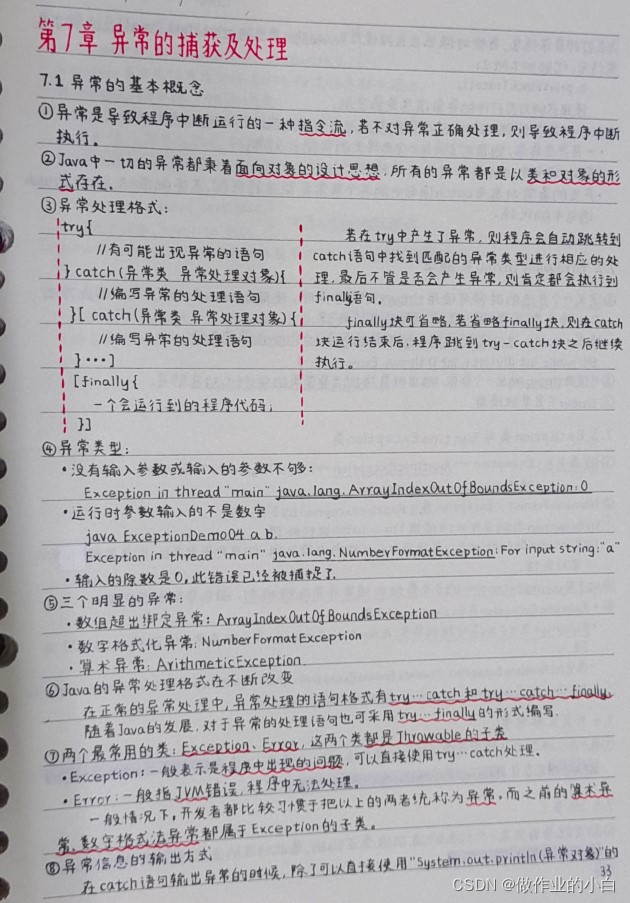 第7章 异常的捕获及处理
7.1 异常的基本概念
①异常是导致程序中断运行的一种指令流,若不对异常正确处理,则导致程序中断
执行。
②Java中一切的异常都秉着面向对象的设计思想,所有的异常都是以类和对象的形
式存在.
③异常处理格式:
try{
//有可能出现异常的语句
} catch(异常类 异常处理对象){
//编写异常的处理语句
}[ catch(异常类 异常处理对象){
//编写异常的处理语句
}···]
[finally{
一个会运行到的程序代码;
}]
若在try中产生了异常,则程序会自动跳转到
catch语句中找到匹配的异常类型进行相应的处
理,最后不管是否会产生异常,则肯定都会执行到
finally语句.
finally块可省略,若省略finally块,则在catch
块运行结束后,程序跳到try-catch块之后继续
执行。
④异常类型:
·没有输入参数或输入的参数不够:
Exception in thread "main" java.lang.ArrayIndexOutOfBoundsException:0
·运行时参数输入的不是数字
java ExceptionDemo04 a b.
Exception in thread "main" java.lang.NumberFormatException:For input string:"a"
·输入的除数是0,此错误已经被捕捉了.
⑤三个明显的异常:
·数组超出绑定异常:ArrayIndexOutOfBoundsException
·数字格式化异常:NumberFormatException
·算术异常:ArithmeticException
⑥Java的异常处理格式在不断改变
在正常的异常处理中,异常处理的语句格式有try…catch和try…catch…finally.
随着Java的发展.对于异常的处理语句也可采用try…finally的形式编写.
⑦两个最常用的类:Exception、Error,这两个类都是Throwable的子类
·Exception:一般表示是程序中出现的问题,可以直接使用try…catch处理。
·Error:一般指JVM错误,程序中无法处理。
一般情况下,开发者都比较习惯于把以上的两者统称为异常,而之前的算术异
常、数字格式法异常都属于Exception的子类。
⑧异常信息的输出方式
在catch语句输出异常的时候,除了可以直接使用"System.out.println(异常对象)"的
33
CSDN @做作业的小白